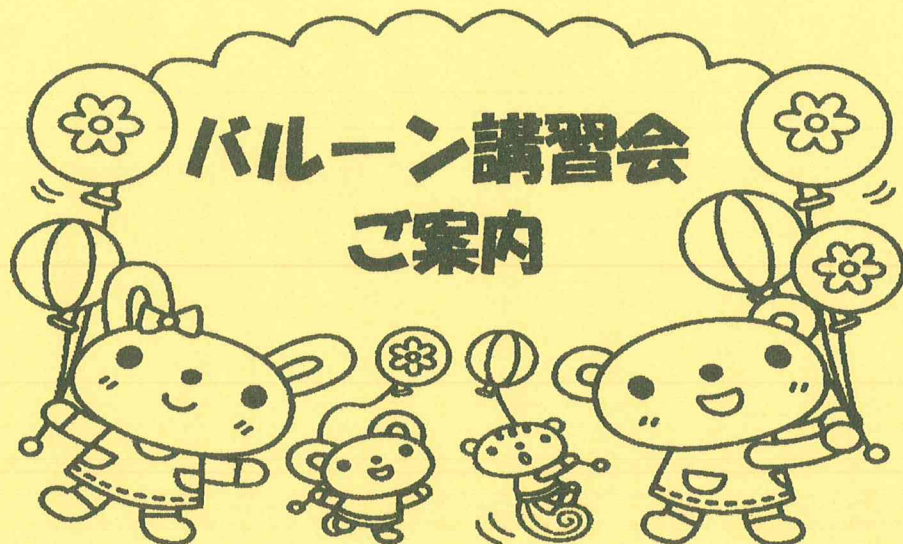 バルーン講習会
ご案内